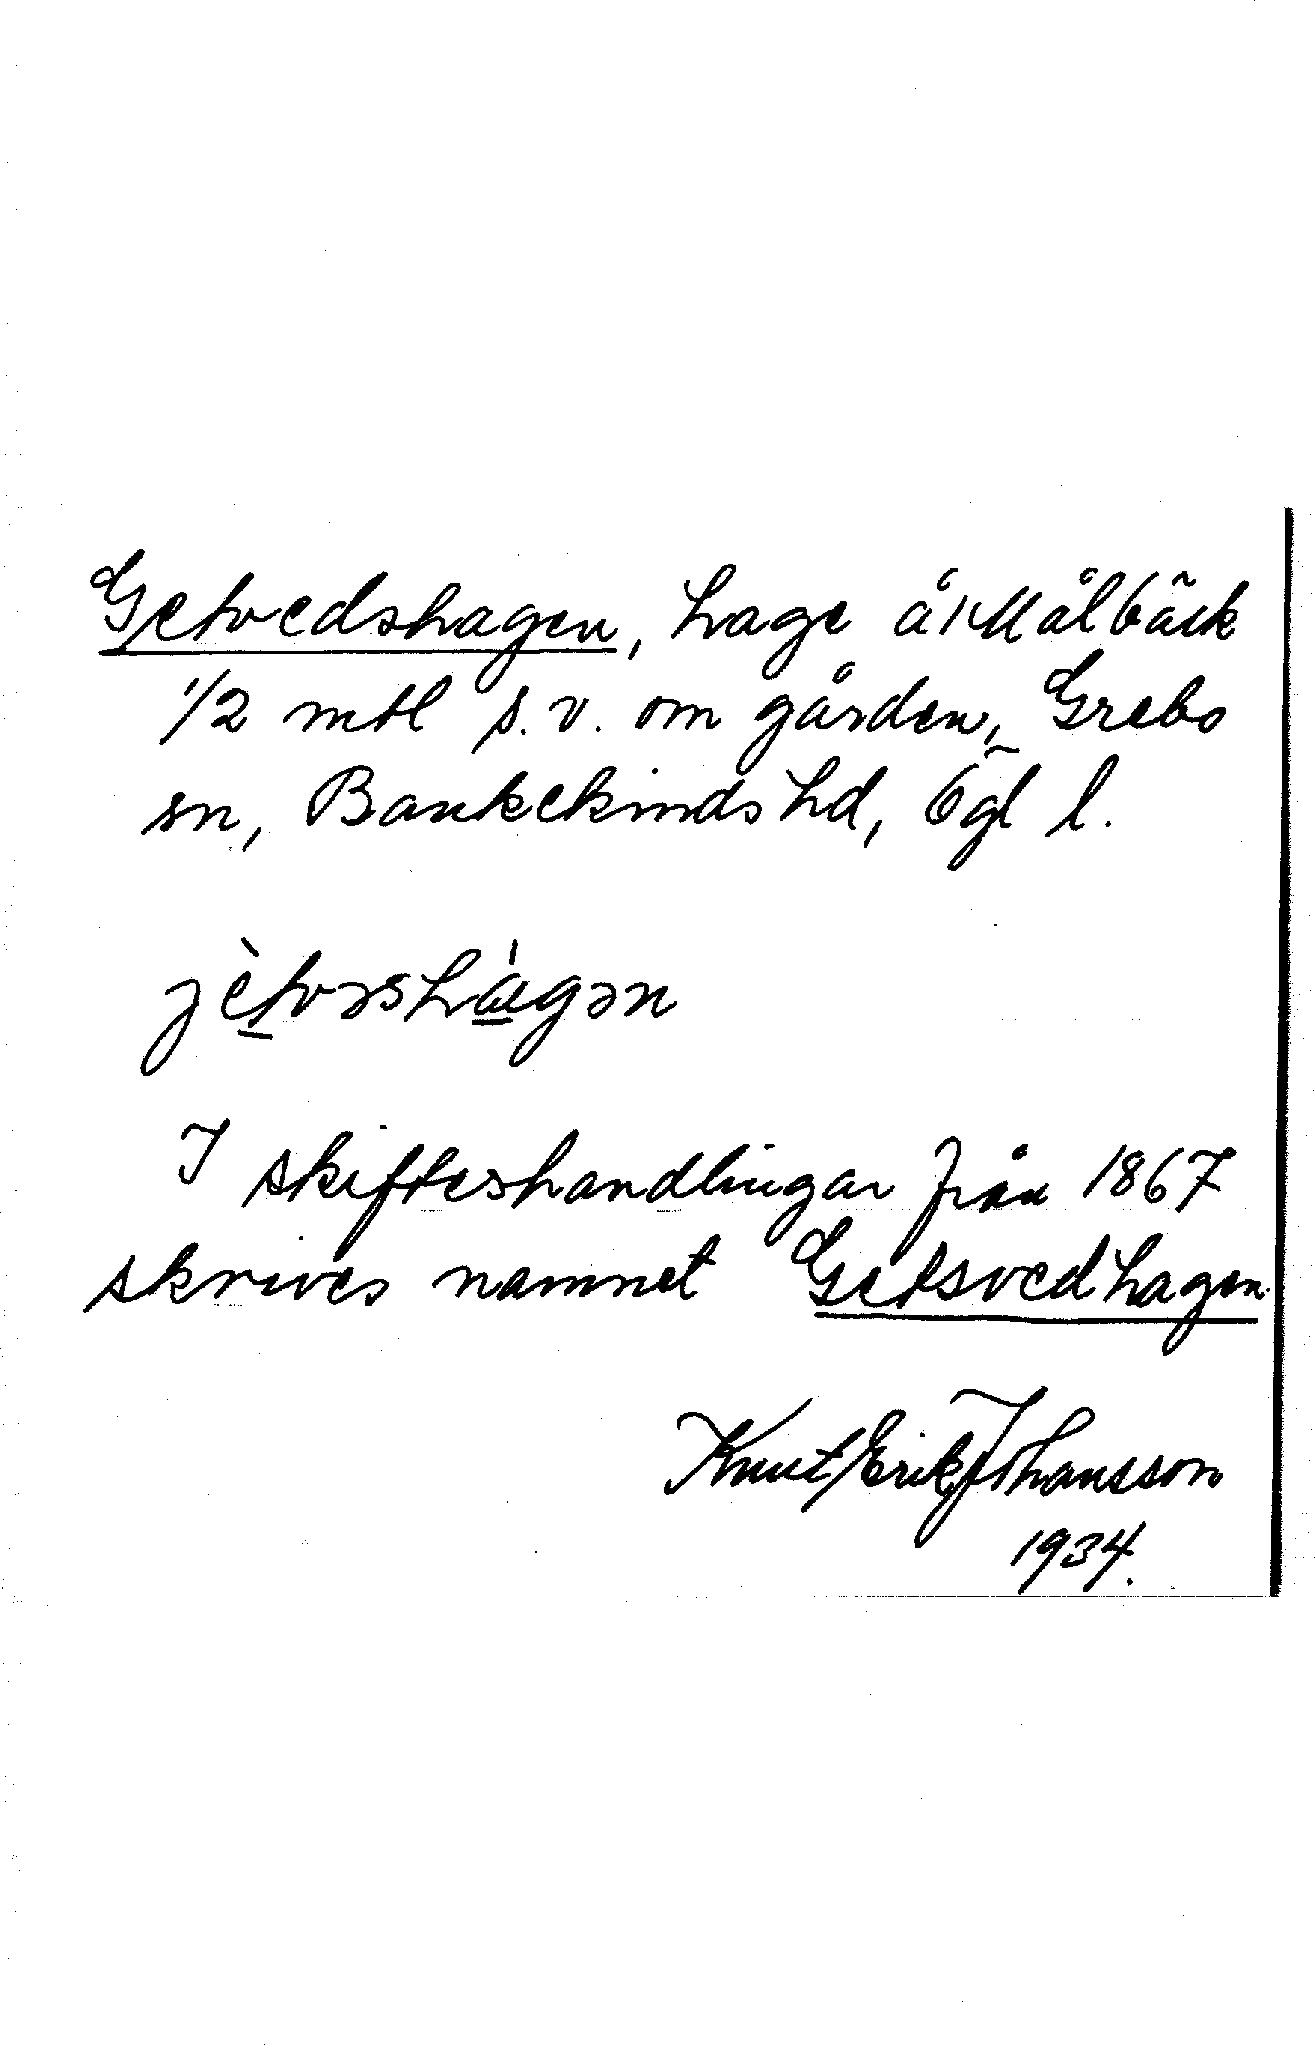 Getvedshagen, hage å Målbäck
1/2 mtl s.v. om gården, Grebo
sn, Bankekinds hd, Ögl l.
jètvəshàgən
I skifteshandlingar från 1867
skrives namnet Getsvedhagen.
Knut Erik Johansson
1934.